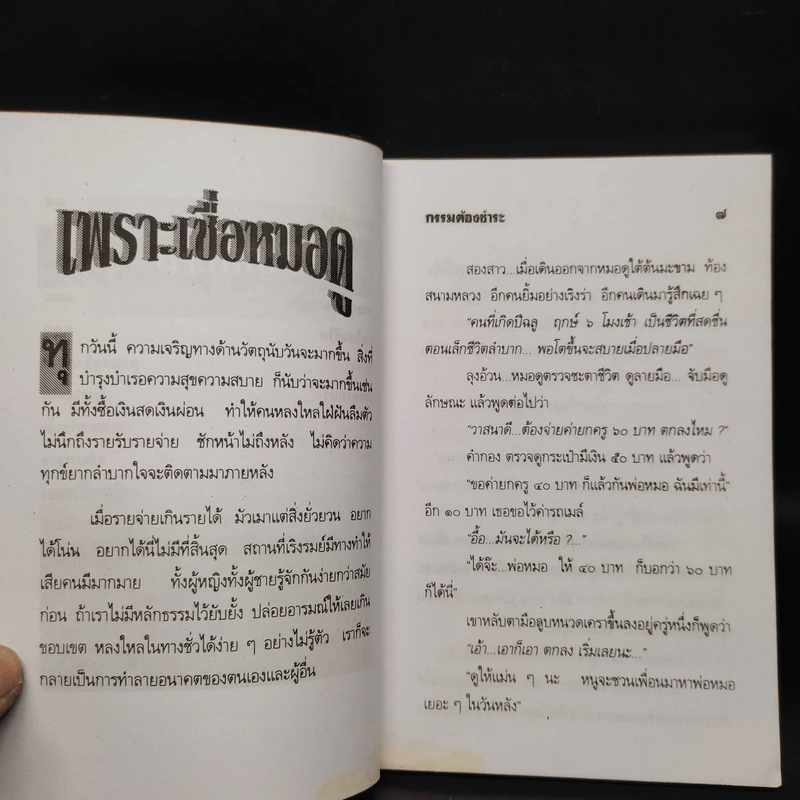 เพราะเชื่อหมอดู
ทุกวันนี้ ความเจริญทางด้านวัตถุนับวันจะมากขึ้น สิ่งที่
บำรุงบำเรอความสุขความสบาย ก็นับว่าจะมากขึ้นเช่น
กัน มีทั้งซื้อเงินสดเงินผ่อน ทำให้คนหลงใหลใฝ่ฝันลืมตัว
ไม่นึกถึงรายรับรายจ่าย ชักหน้าไม่ถึงหลัง ไม่คิดว่าความ
ทุกข์ยากลำบากใจจะติดตามมาภายหลัง
เมื่อรายจ่ายเกินรายได้ มัวเมาแต่สิ่งยั่วยวน อยาก
ได้โน่น อยากได้นี่ไม่มีที่สิ้นสุด สถานที่เริงรมย์มีทางทำให้
เสียคนมีมากมาย ทั้งผู้หญิงทั้งผู้ชายรู้จักกันง่ายกว่าสมัย
ก่อน ถ้าเราไม่มีหลักธรรมไว้ยับยั้ง ปล่อยอารมณ์ให้เลยเกิน
ขอบเขต หลงใหลในทางชั่วได้ง่าย ๆ อย่างไม่รู้ตัว เราก็จะ
กลายเป็นการทำลายอนาคตของตนเองและผู้อื่น
กรรมต้องชำระ ๗
สองสาว...เมื่อเดินออกจากหมอดูใต้ต้นมะขาม ท้อง
สนามหลวง อีกคนยิ้มอย่างเริงร่า อีกคนเดินมารู้สึกเฉย ๆ
“คนที่เกิดปีฉลู ฤกษ์ ๖ โมงเช้า เป็นชีวิตที่สดชื่น
ตอนเล็กชีวิตลำบาก... พอโตขึ้นจะสบายเมื่อปลายมือ”
ลุงอ้วน...หมอดูตรวจชะตาชีวิต ดูลายมือ... จับมือดู
ลักษณะ แล้วพูดต่อไปว่า
“วาสนาดี...ต้องจ่ายค่ายกครู ๖๐ บาท ตกลงไหม ?”
คำกอง ตรวจดูกระเป๋ามีเงิน ๕๐ บาท แล้วพูดว่า
“ขอค่ายกครู ๔๐ บาท ก็แล้วกันพ่อหมอ ฉันมีเท่านี้”
อีก ๑๐ บาท เธอขอไว้ค่ารถเมล์
“อื้อ...มันจะได้หรือ ?...”
“ได้จ๊ะ...พ่อหมอ ให้ ๔๐ บาท ก็บอกว่า ๖๐ บาท
ก็ได้นี่”
เขาหลับตามือลูบหนวดเคราขึ้นลงอยู่ครู่หนึ่งก็พูดว่า
“เอ้า...เอาก็เอา ตกลง เริ่มเลยนะ...”
“ดูให้แม่น ๆ นะ หนูจะชวนเพื่อนมาหาพ่อหมอ
เยอะ ๆ ในวันหลัง”